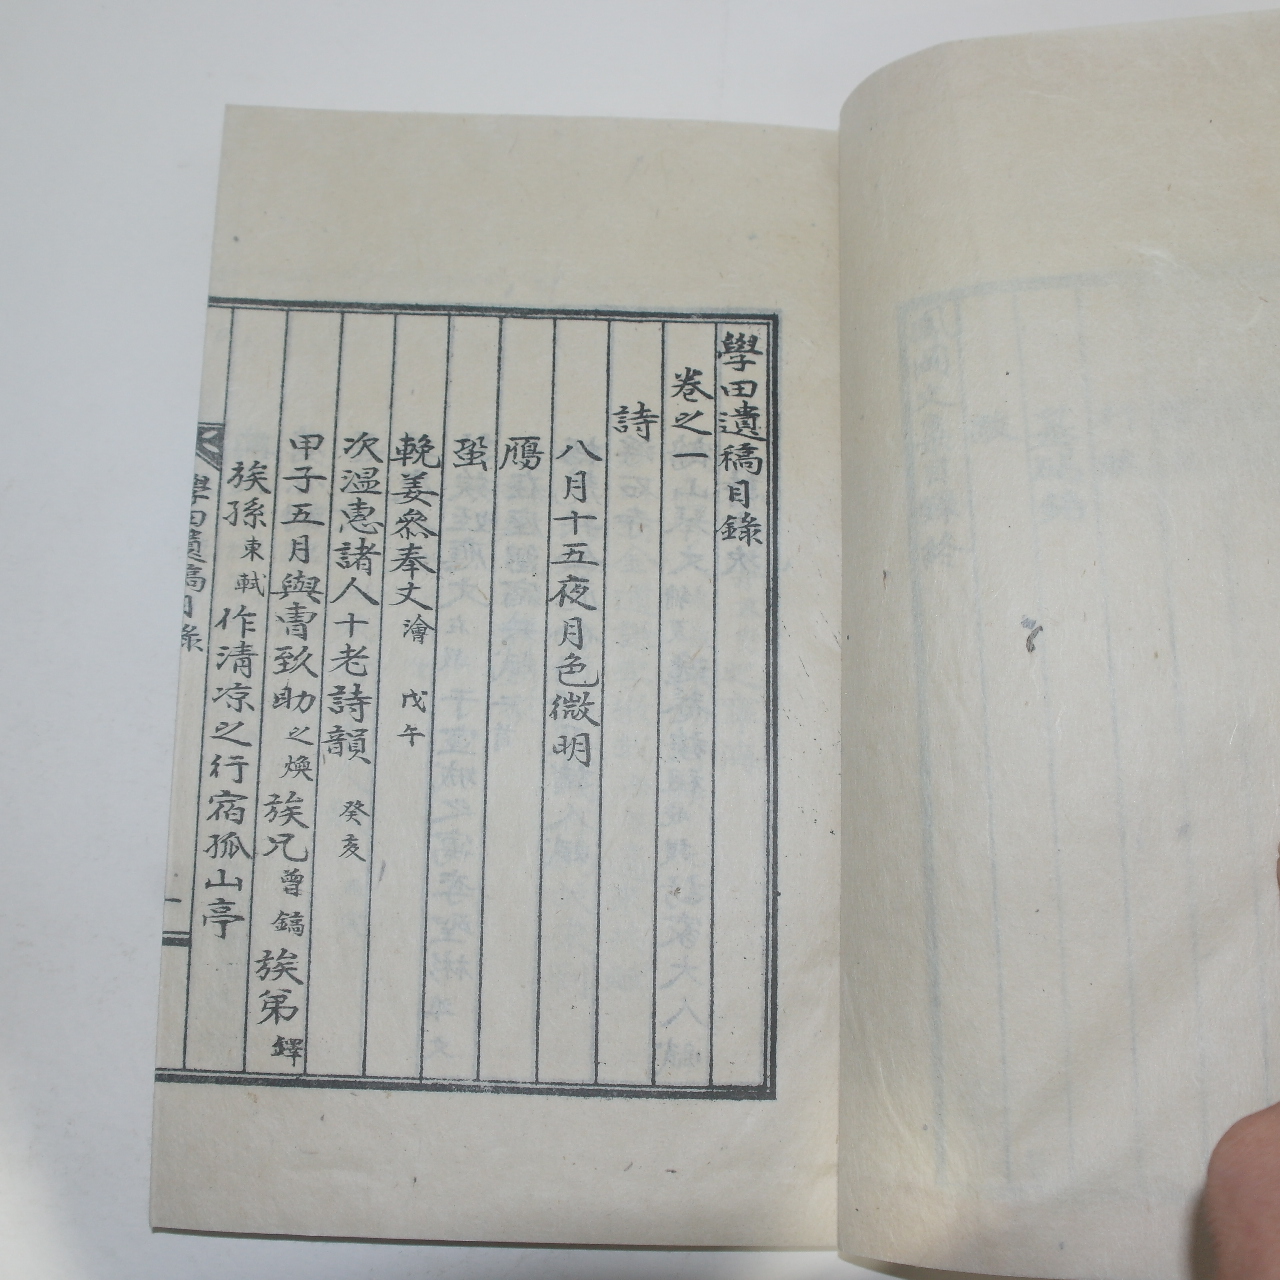 學田遺稿目錄
卷之一
詩
八月十五夜月色微明
鴈
蛩
輓姜參奉丈 濬 戊午
次溫惠諸人十老詩韻 癸亥
甲子五月與 致助 之煥 族兄 曾鎬 族弟 鐸
族孫 東軾 作淸凉之行宿孤山亭
學田遺稿目錄
一